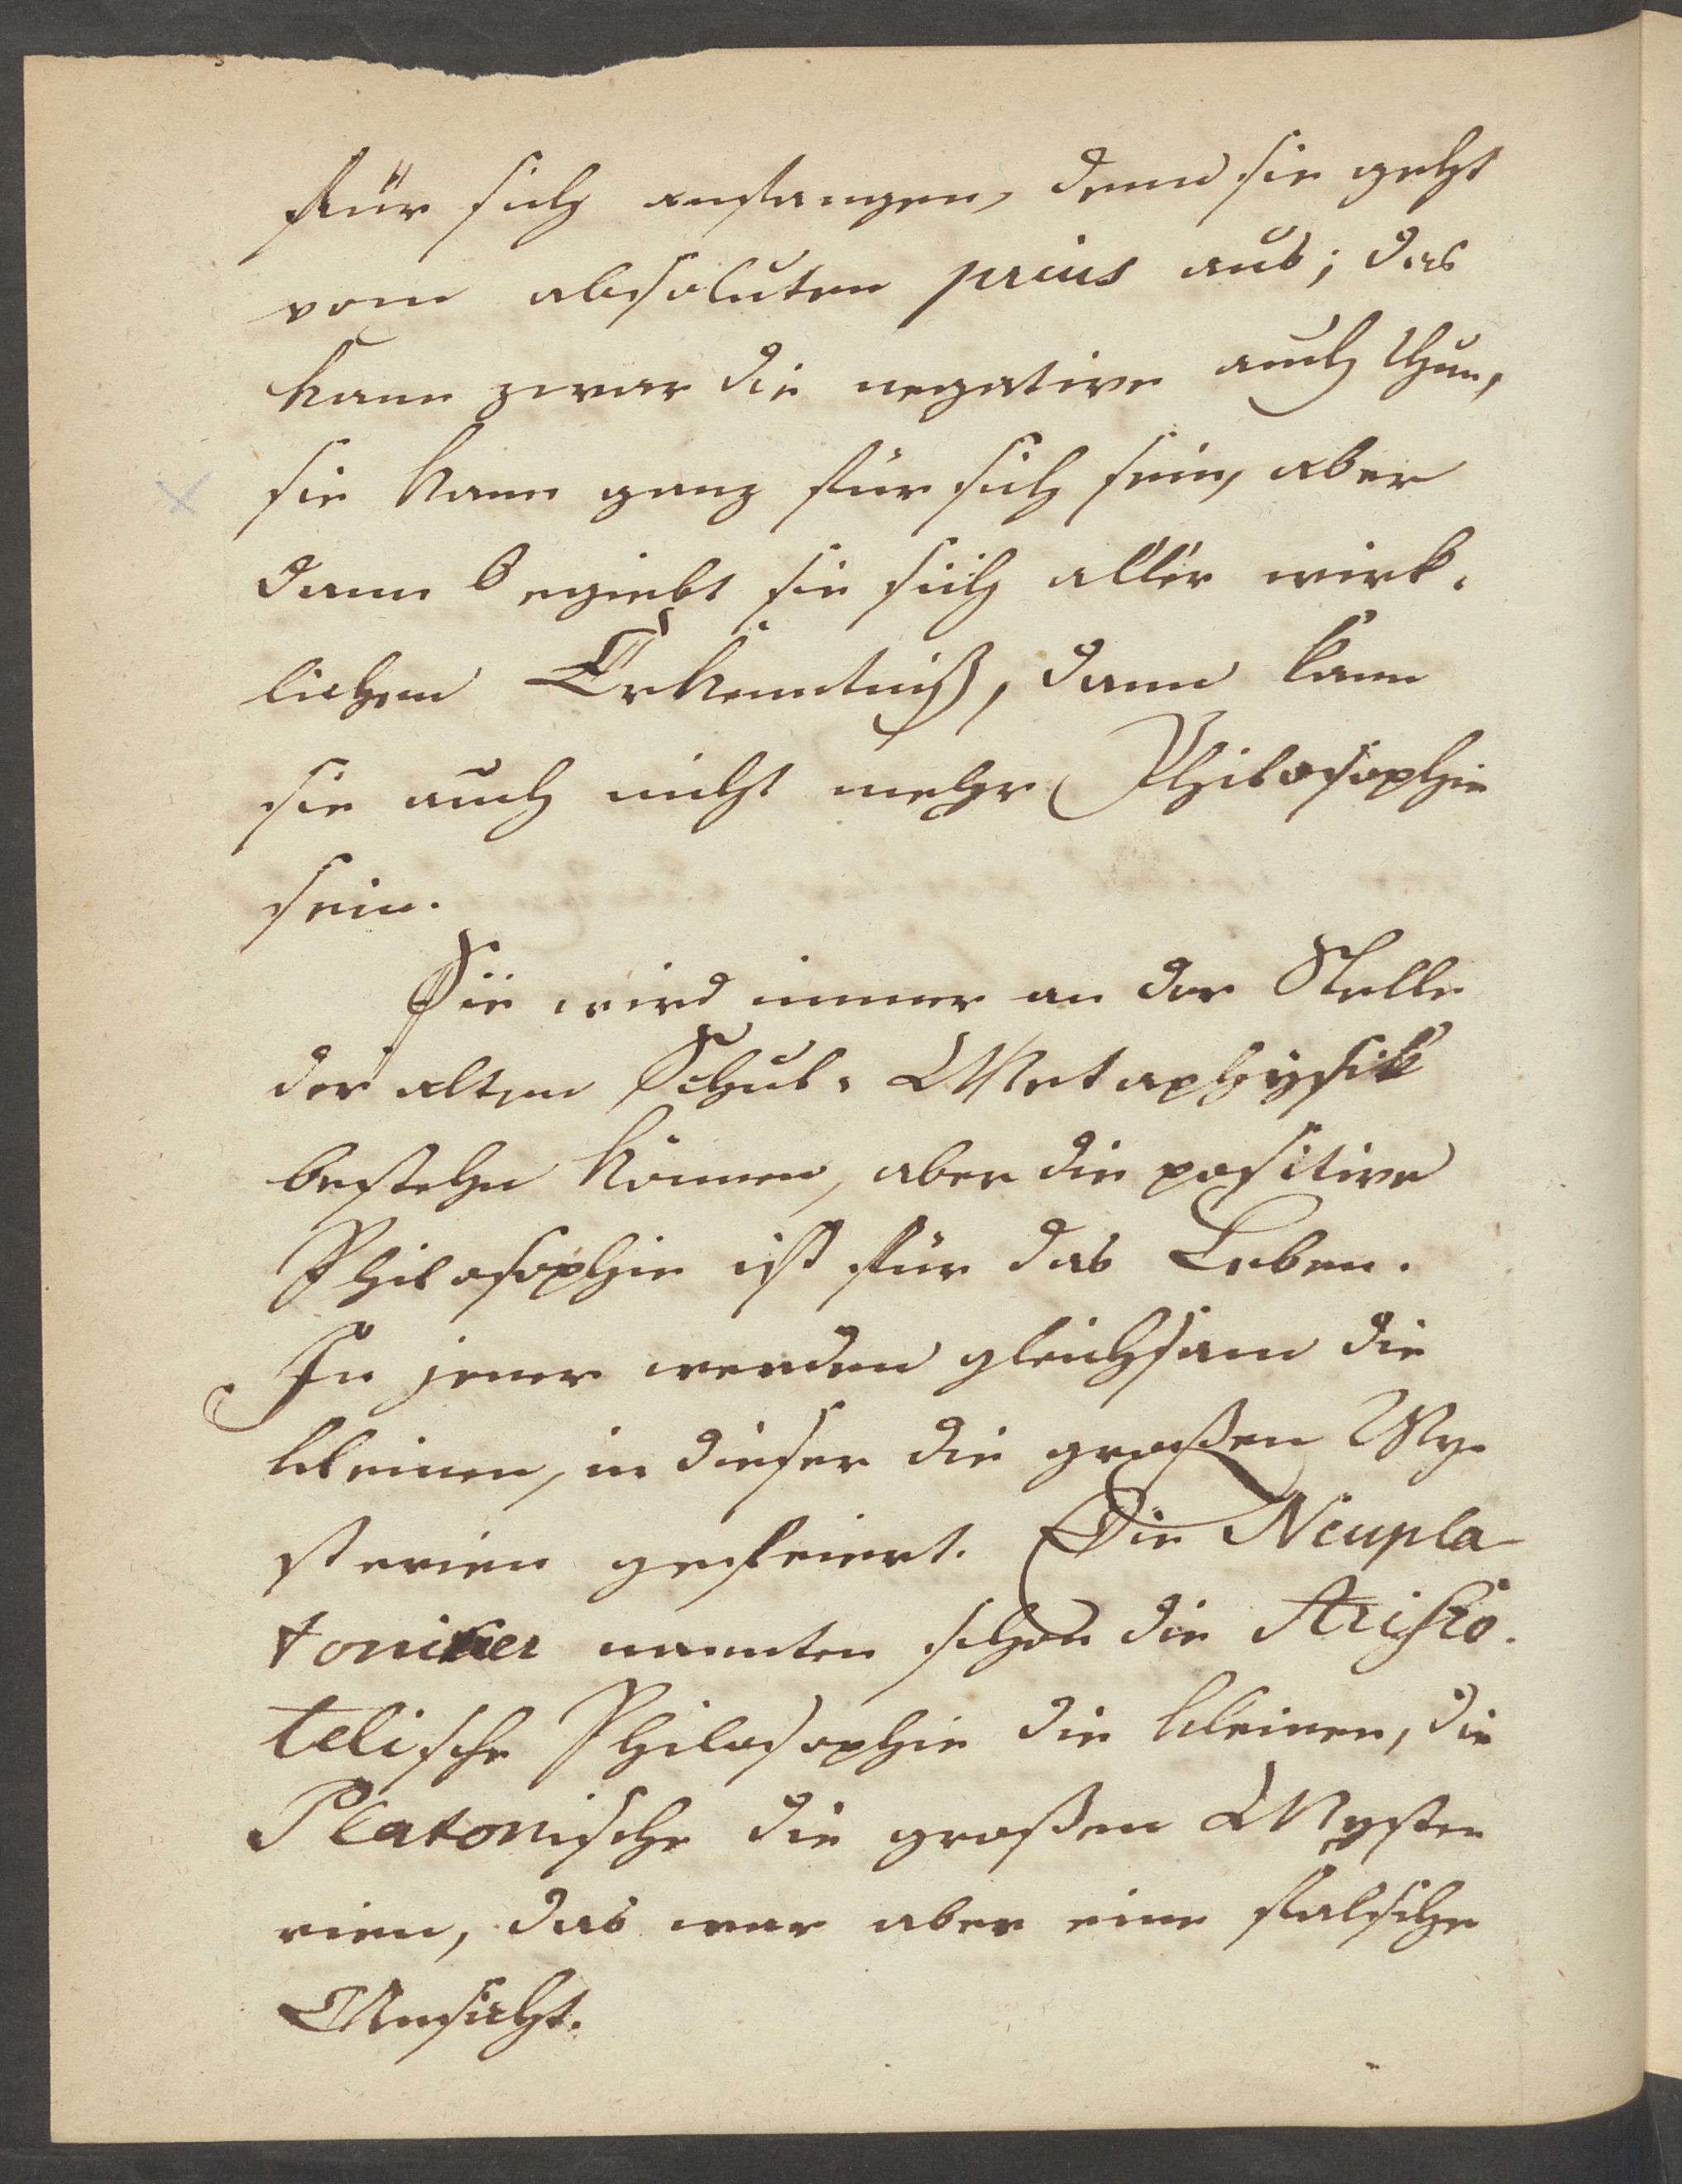 für sich anfangen, denn sie geht
vom absoluten prius aus; das
kann zwar die negative auch thun,
sie kann ganz für sich sein, aber
dann begiebt sie sich aller wirk-
lichen Erkenntniß, dann kann
sie auch nicht mehr Philosophie
sein.
Sie wird immer an der Stelle
der alten Schul-Metaphysik
bestehn können, aber die positive
Philosophie ist für das Leben.
In jener werden gleichsam die
kleinen, in dieser die großen My-
sterien gefeiert. Die Neupla-
toniker nannten schon die Aristo-
telische Philosophie die kleinen, die
Platonische die großen Myste
rien, das war aber eine falsche
Ansicht.